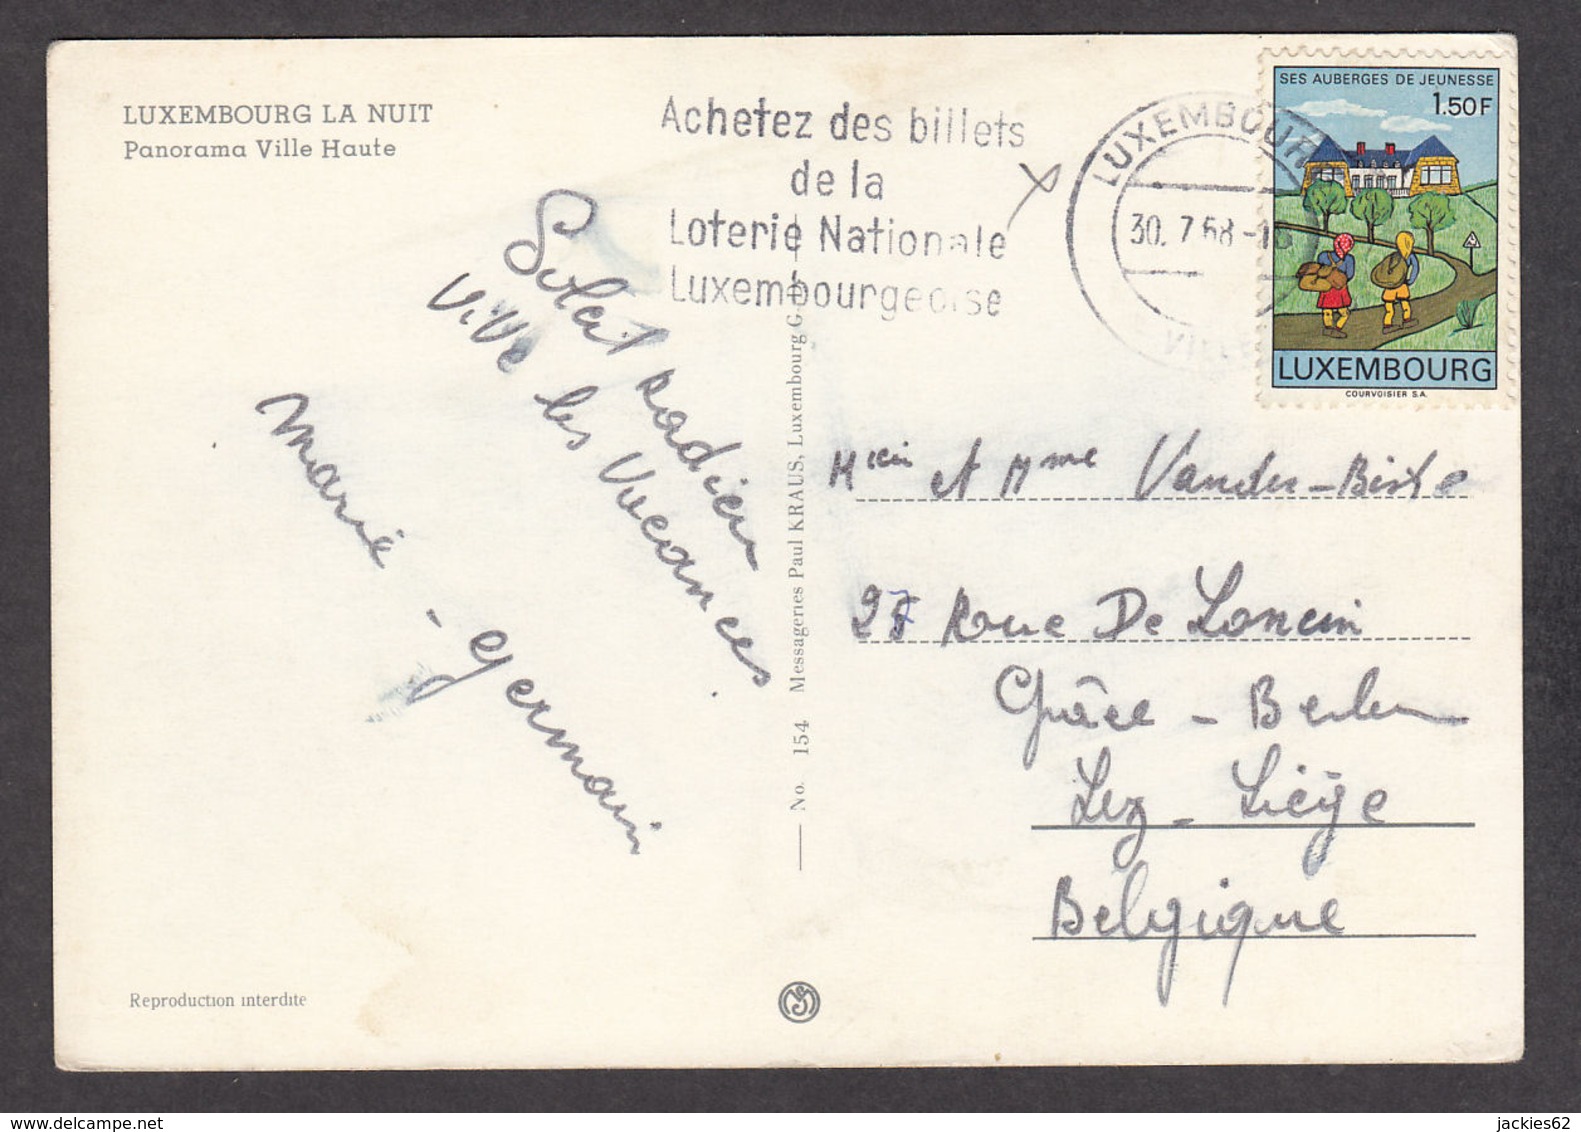 LUXEMBOURG LA NUIT
Panorama Ville Haute
Achetez des billets
de la
Loterie Nationale
Luxembourgeoise
LUXEMBOURG
30.7.68-18
VILLE
SES AUBERGES DE JEUNESSE
1.50F
LUXEMBOURG
COURVOISIER S.A.
Soleil Radieu
ViVe les Vacances
Marie - Germain
et Mme
27 Rue De Loncin
Grâce - Berleur
Lez - Liège
Belgique
No. 154 Messageries Paul KRAUS, Luxembourg
Reproduction interdite
delcampe.net
jackies62